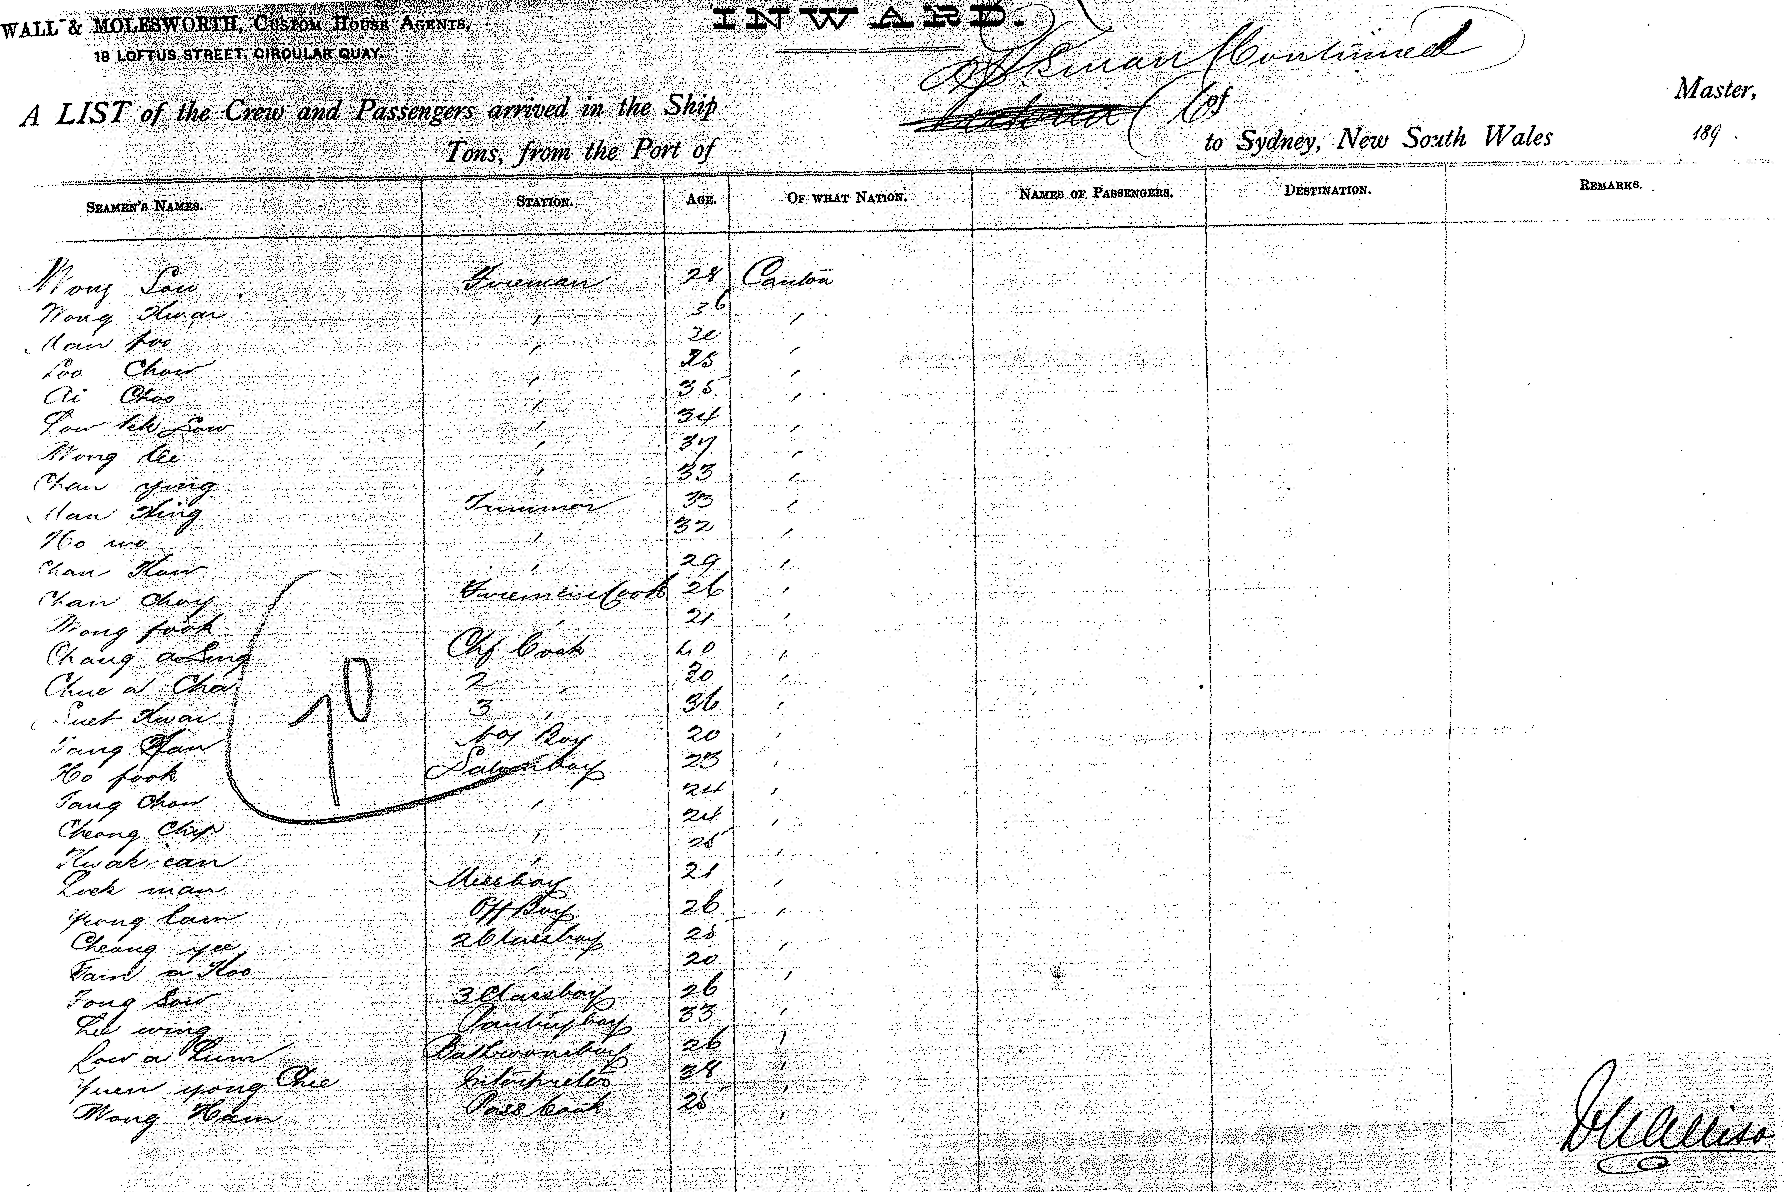 WALL & MOLESWORTH, CUSTOM HOUSE AGENTS,
18 LOFTUS STREET, CIRCULAR QUAY.
INWARD.
(Continued)
A LIST of the Crew and Passengers arrived in the Ship of Master,
Tons, from the Port of to Sydney, New South Wales 189 .
SEAMEN'S NAMES. STATION. AGE. OF WHAT NATION. NAMES OF PASSENGERS. DESTINATION. REMARKS.
Wong Sow Fireman 28 Canton
Wong Kwai " 36 "
Man foo " 30 "
Loo Chow " 25 "
Ai Choo " 35 "
Low Sow " 34 "
Wong Lee " 37 "
Chan ying " 33 "
Man Hing Trimmer 33 "
Ho wo " 32 "
Chan Kow " 29 "
Chan Choy Firemens Cook 26 "
Wong fook " 21 "
Chang a Sing Chf Cook 40 "
Chue a Cha 2 " 20 "
Suet Kwai 3 " 36 "
Tang Boy 20 "
Ho fook Saloonboy 23 "
Tang Chow " 24 "
Cheong Chip " 24 "
Kwak can " 25 "
Lock man Messboy 21 "
yong lam Off Boy 26 "
Cheong yee 2 Classboy 25 "
Tam a Koo " 20 "
Tong Sow 3 Classboy 26 "
Lee wing Pantryboy 33 "
Low a Lum Bathroomboy 26 "
Yuen yong Chee Interpreter 38 "
Wong Ham Pass cook 25 "
70